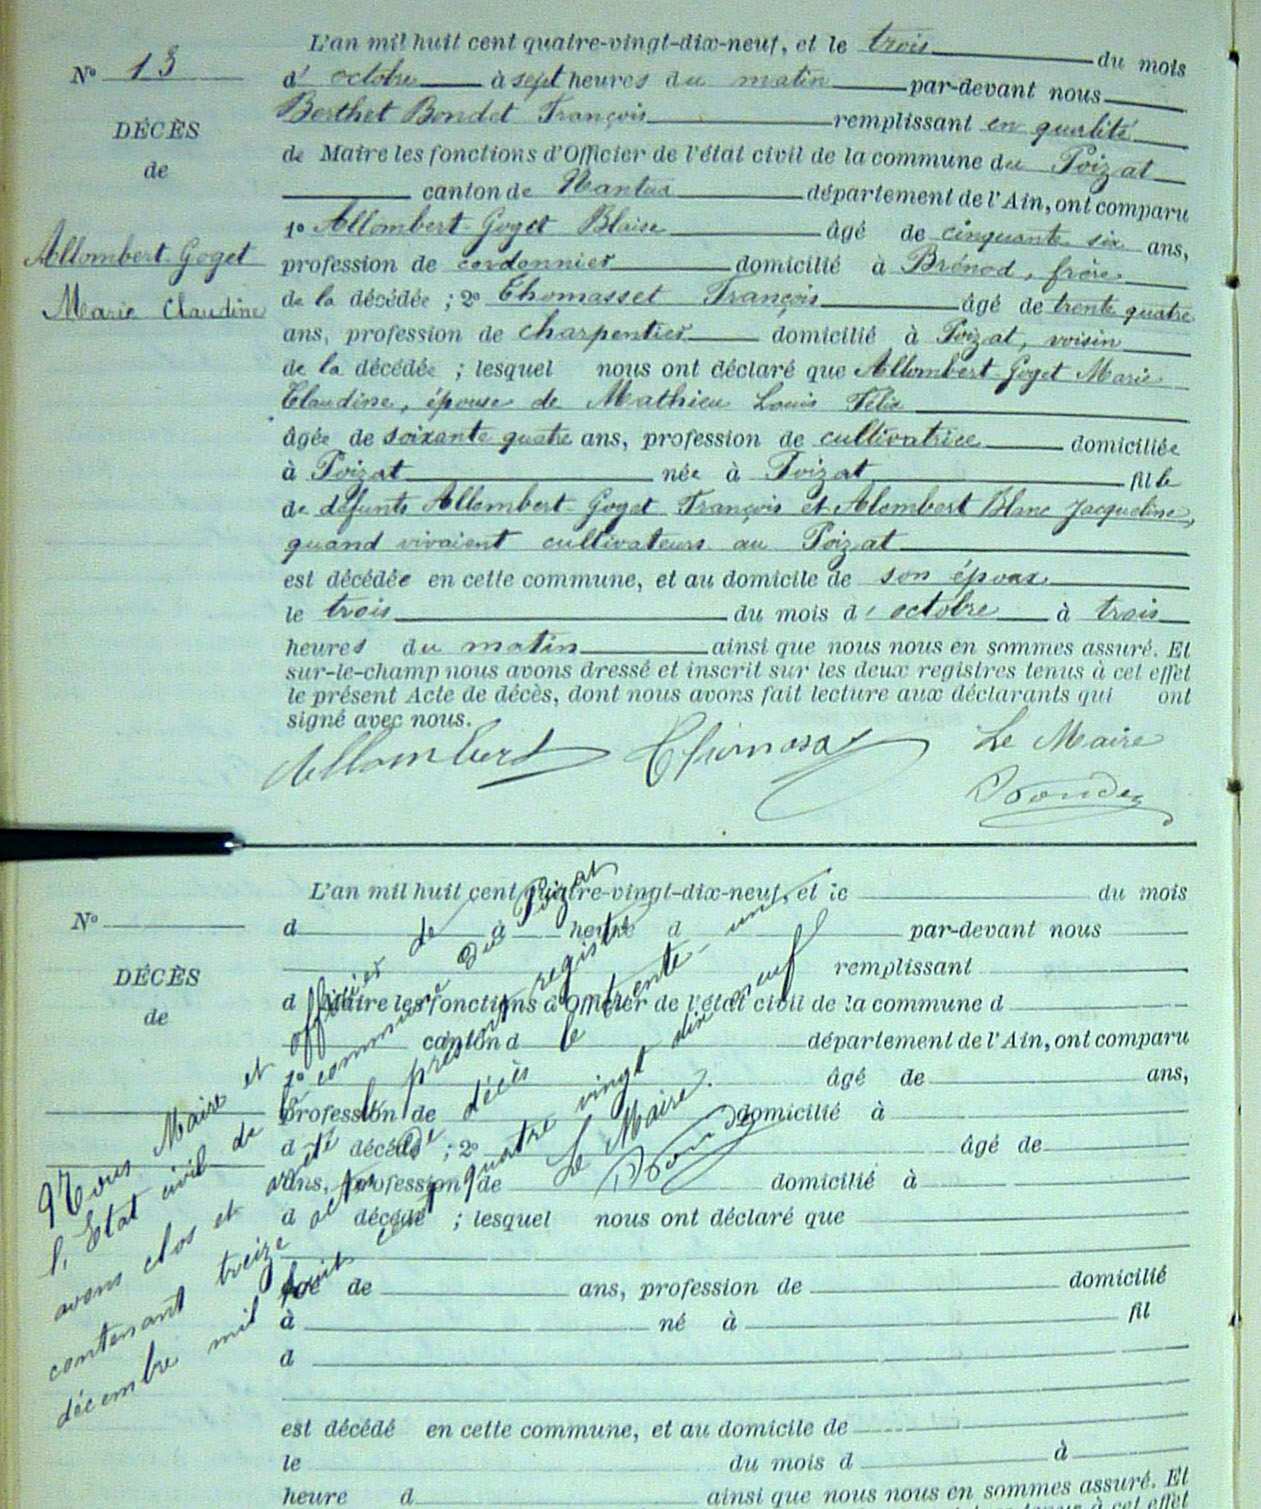 L'an mil huit cent quatre-vingt-dix-neuf, et le trois du mois
N° 13
d' octobre à sept heures du matin par-devant nous
Berthet Bondet François remplissant en qualité
DÉCÈS
de Maire les fonctions d'Officier de l'état civil de la commune du Poizat
de
canton de Nantua département de l'Ain, ont comparu
1° Allombert-Goget Blaise âgé de cinquante six ans,
Allombert-Goget
profession de cordonnier domicilié à Brénod, frère
Marie Claudine
de la décédée ; 2° Thomasset François âgé de trente quatre
ans, profession de charpentier domicilié à Poizat, voisin
de la décédée ; lesquel nous ont déclaré que Allombert-Goget Marie
Claudine, épouse de Mathieu Louis Félix
âgée de soixante quatre ans, profession de cultivatrice domiciliée
à Poizat née à Poizat fille
de défunts Allombert-Goget François et Alombert Blanc Jacqueline,
quand vivaient cultivateurs au Poizat
est décédée en cette commune, et au domicile de son époux
le trois du mois d' octobre à trois
heures du matin ainsi que nous nous en sommes assuré. Et
sur-le-champ nous avons dressé et inscrit sur les deux registres tenus à cet effet
le présent Acte de décès, dont nous avons fait lecture aux déclarants qui ont
signé avec nous.
Allombert Thomasset Le Maire
Bondet
L'an mil huit cent quatre-vingt-dix-neuf, et le du mois
N°
d à heure d par-devant nous
remplissant
DÉCÈS
d Maire les fonctions d'Officier de l'état civil de la commune d
de
canton d département de l'Ain, ont comparu
1° âgé de ans,
profession de domicilié à
d décédé ; 2° âgé de
ans, profession de domicilié à
d décédé ; lesquel nous ont déclaré que
âgé de ans, profession de domicilié
à né à fil
d
est décédé en cette commune, et au domicile de
le du mois d à
heure d ainsi que nous nous en sommes assuré. Et
Nous Maire et officier de
l'Etat civil de la commune du Poizat
avons clos et arrêté le présent registre
contenant treize actes de décès le trente-un
décembre mil huit cent quatre vingt dix neuf
Le Maire.
Bondet